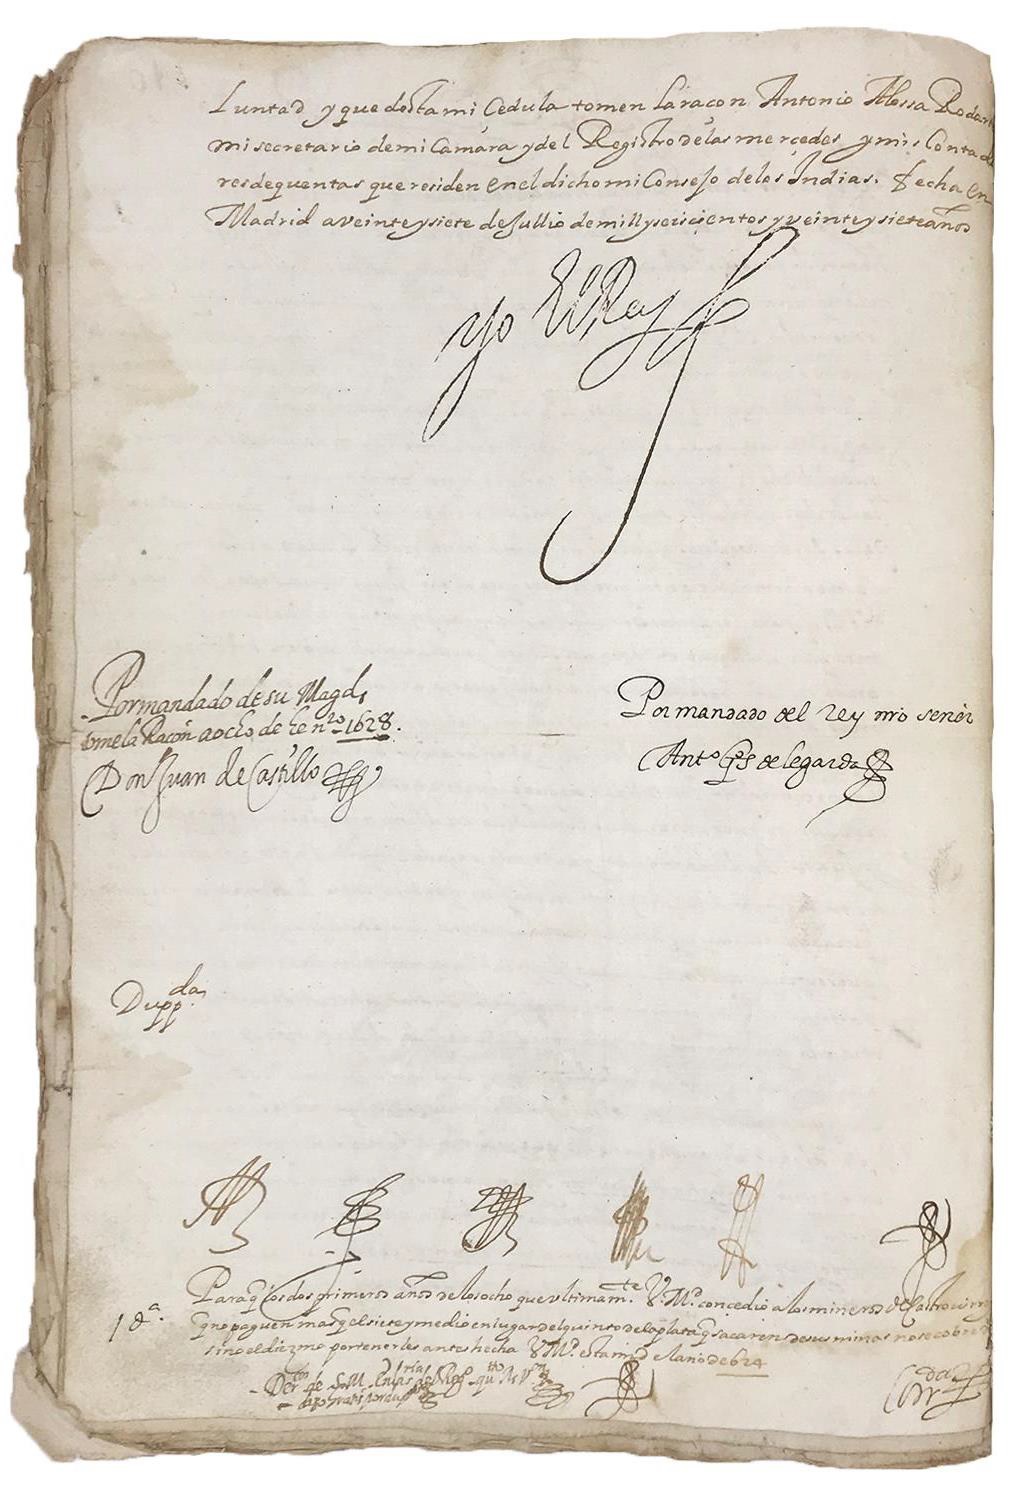 luntad y que desta mi Cedula tomen la racon Antonio Alossa Rodart
mi secretario de mi Camara y del Registro de las mercedes y mis Contado
res de quentas que residen en el dicho mi Consejo de los Indias. Fecha en
Madrid a veinte y siete de Jullio de mill y seiscientos y veinte y siete años
yo El Rey
Por mandado de su Magd,
tome la Racon a ocho de hen.ro 1628.
Don Juan de Castillo
Por mandado del rey nro señor
Ant.o de legarda
Dupp.da
1 d.a
Para q los dos primeros años de los ocho que vltimam.te V. M.d concedio a los mineros de Castro virrey
q no paguen mas q el siete y medio en lugar del quinto de la plata q sacaren de sus minas no se cobre
sino el diezmo por tenerles antes hecha V. M.d esta mrd el año de 624
de S. M.
Corr.da